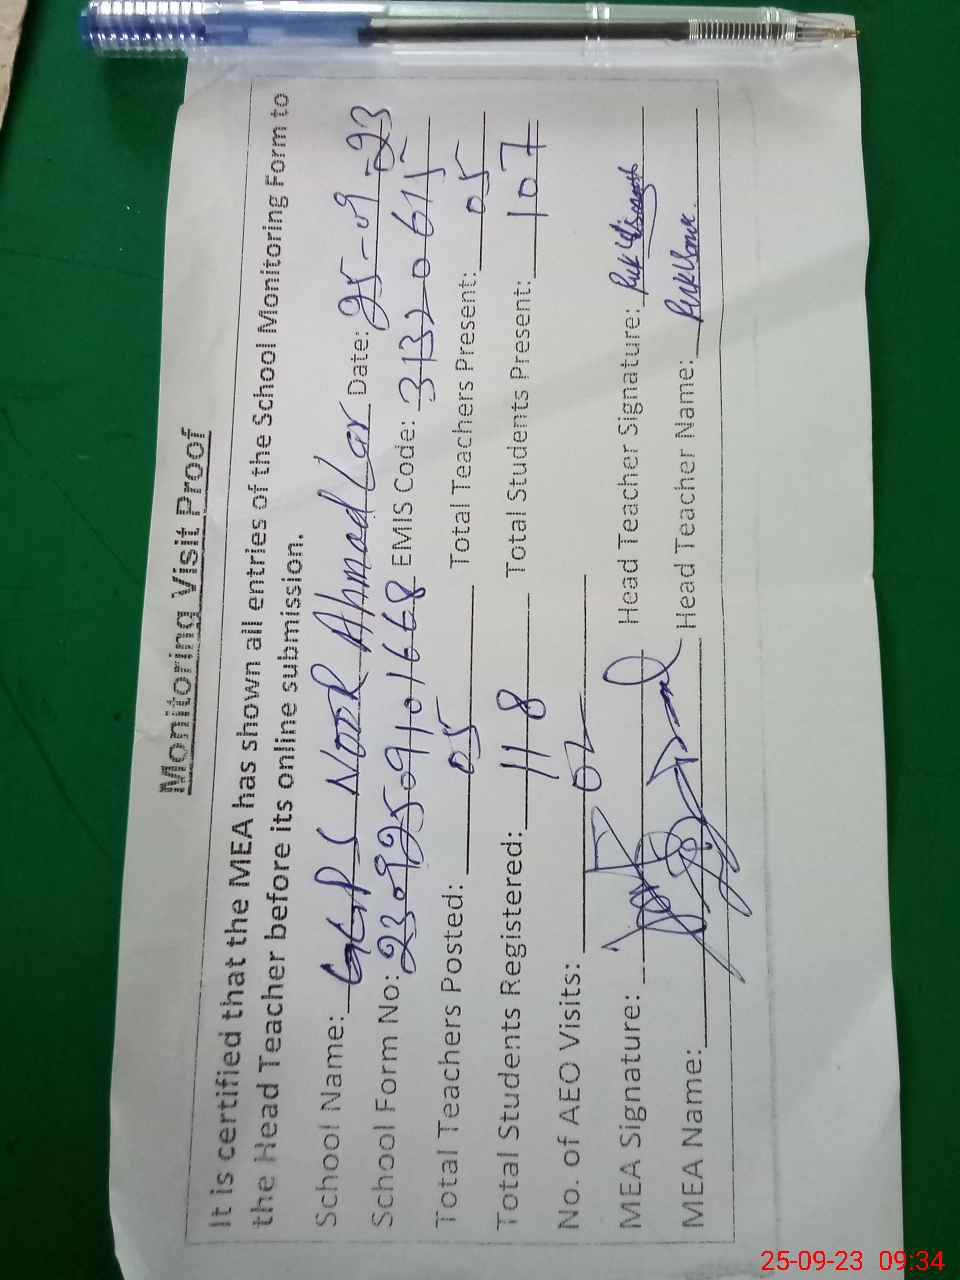 Monitoring Visit Proof
It is certified that the MEA has shown all entries of the School Monitoring Form to
the Head Teacher before its online submission.
School Name: GGPS Noor Ahmad Lar Date: 25-09-23
School Form No: 23092509101668 EMIS Code: 31320615
Total Teachers Posted: 05 Total Teachers Present: 05
Total Students Registered: 118 Total Students Present: 107
No. of AEO Visits: 02
MEA Signature: Head Teacher Signature:
MEA Name: Head Teacher Name:
25-09-23 09:34